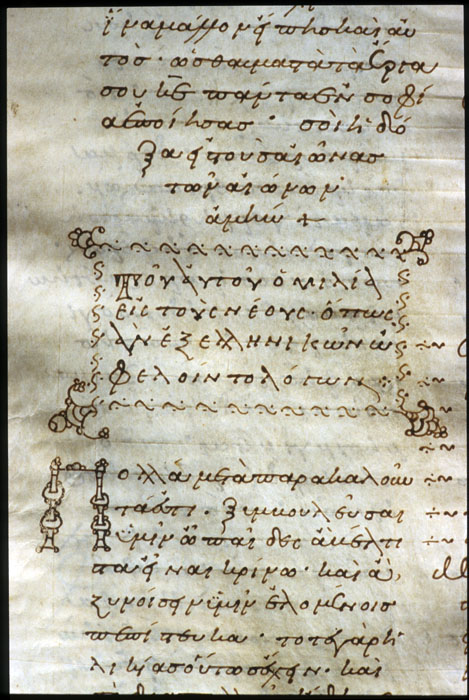 ἵνα μᾶλλον εἴπης καὶ αὐ
τός· ὡς θαυμαστὰ τὰ ἔργα
σου κε πάντα ἐν σοφί
α ἐποίησας· σοὶ ἡ δό
ξα εἰς τοὺς αἰῶνας
τῶν αἰώνων
ἀμήν +
Τοῦ αὐτοῦ ὁμιλία
εἰς τοὺς νέους· ὅπως
ἂν ἐξ ἑλληνικῶν ὠ
φελοῖντο λόγων :
Πολλά με τὰ παρακαλοῦν
τά ἐστι· ξυμβουλεῦσαι
ὑμῖν ὦ παῖδες ἃ βέλτι
στα εἶναι κρίνω· καὶ ἃ
ξυνοίσειν ὑμῖν ἑλομένοις
πεπίστευκα· τό τε γὰρ ἡ
λικίας οὕτως ἔχειν· καὶ